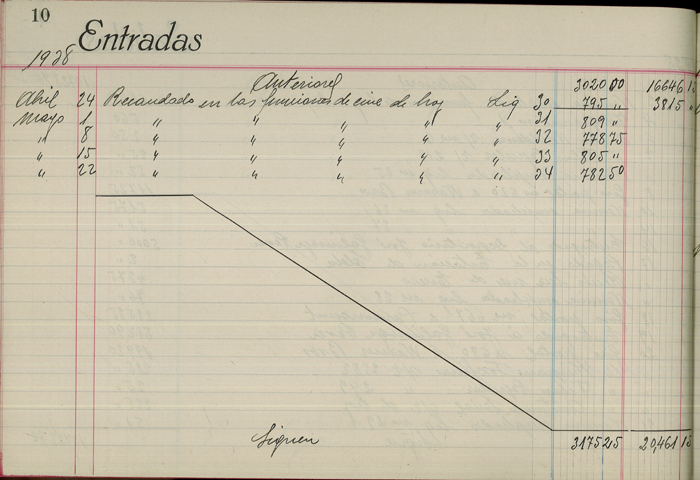 10
Entradas
1938
Anteriores 3020 00 16646 13
Abril 24 Recaudado en las funciones de cine de hoy Liq 30 795 " 3815 "
Mayo 1 " " " " " 31 809 "
" 8 " " " " " 32 778 75
" 15 " " " " " 33 805 "
" 22 " " " " " 34 782 50
Siguen 3175 25 20,461 13